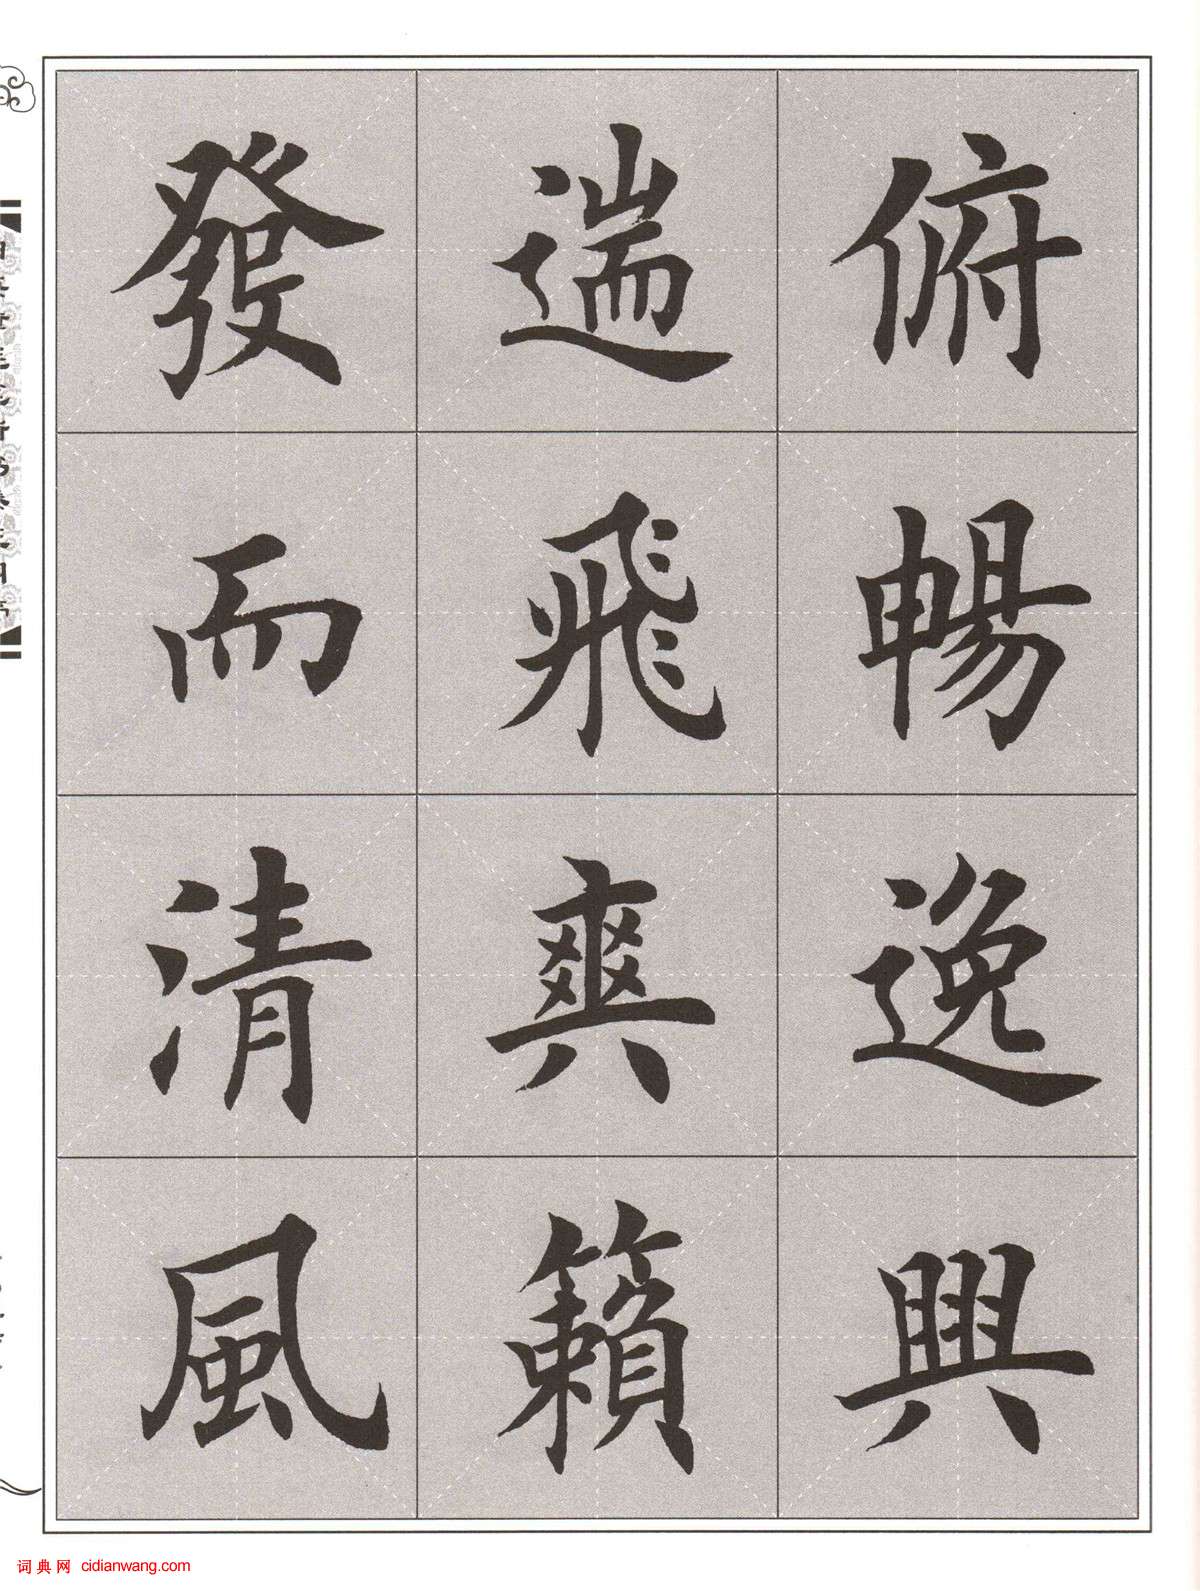 俯暢逸興
遄飛爽籟
發而清風
词典网 cidianwang.com